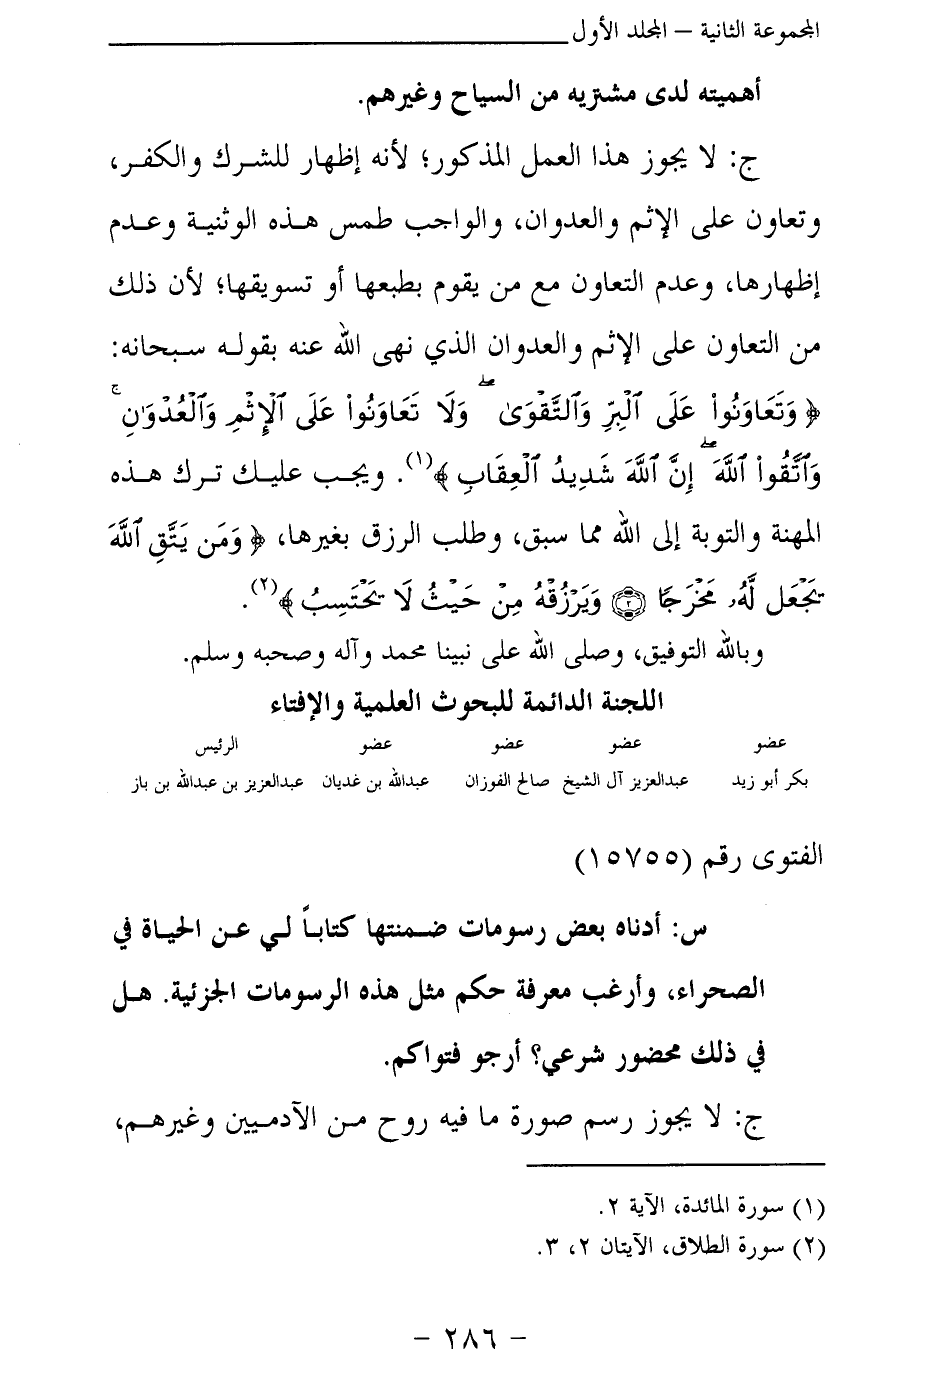 المجموعة الثانية – المجلد الأول
أهميته لدى مشتريه من السياح وغيرهم.
ج: لا يجوز هذا العمل المذكور؛ لأنه إظهار للشرك والكفر،
وتعاون على الإثم والعدوان، والواجب طمس هذه الوثنية وعدم
إظهارها، وعدم التعاون مع من يقوم بطبعها أو تسويقها؛ لأن ذلك
من التعاون على الإثم والعدوان الذي نهى الله عنه بقوله سبحانه:
﴿ وَتَعَاوَنُواْ عَلَى ٱلْبِرِّ وَٱلتَّقْوَىٰۖ وَلَا تَعَاوَنُواْ عَلَى ٱلْإِثْمِ وَٱلْعُدْوَٰنِۚ
وَٱتَّقُواْ ٱللَّهَۖ إِنَّ ٱللَّهَ شَدِيدُ ٱلْعِقَابِ ﴾(١). ويجب عليك ترك هذه
المهنة والتوبة إلى الله مما سبق، وطلب الرزق بغيرها، ﴿ وَمَن يَتَّقِ ٱللَّهَ
يَجْعَل لَّهُۥ مَخْرَجًا ۝٢ وَيَرْزُقْهُ مِنْ حَيْثُ لَا يَحْتَسِبُ ﴾(٢).
وبالله التوفيق، وصلى الله على نبينا محمد وآله وصحبه وسلم.
اللجنة الدائمة للبحوث العلمية والإفتاء
عضو عضو عضو عضو الرئيس
بكر أبو زيد عبدالعزيز آل الشيخ صالح الفوزان عبدالله بن غديان عبدالعزيز بن عبدالله بن باز
الفتوى رقم (١٥٧٥٥)
س: أدناه بعض رسومات ضمنتها كتاباً لي عن الحياة في
الصحراء، وأرغب معرفة حكم مثل هذه الرسومات الجزئية. هل
في ذلك محضور شرعي؟ أرجو فتواكم.
ج: لا يجوز رسم صورة ما فيه روح من الآدميين وغيرهم،
(١) سورة المائدة، الآية ٢.
(٢) سورة الطلاق، الآيتان ٢، ٣.
– ٢٨٦ –